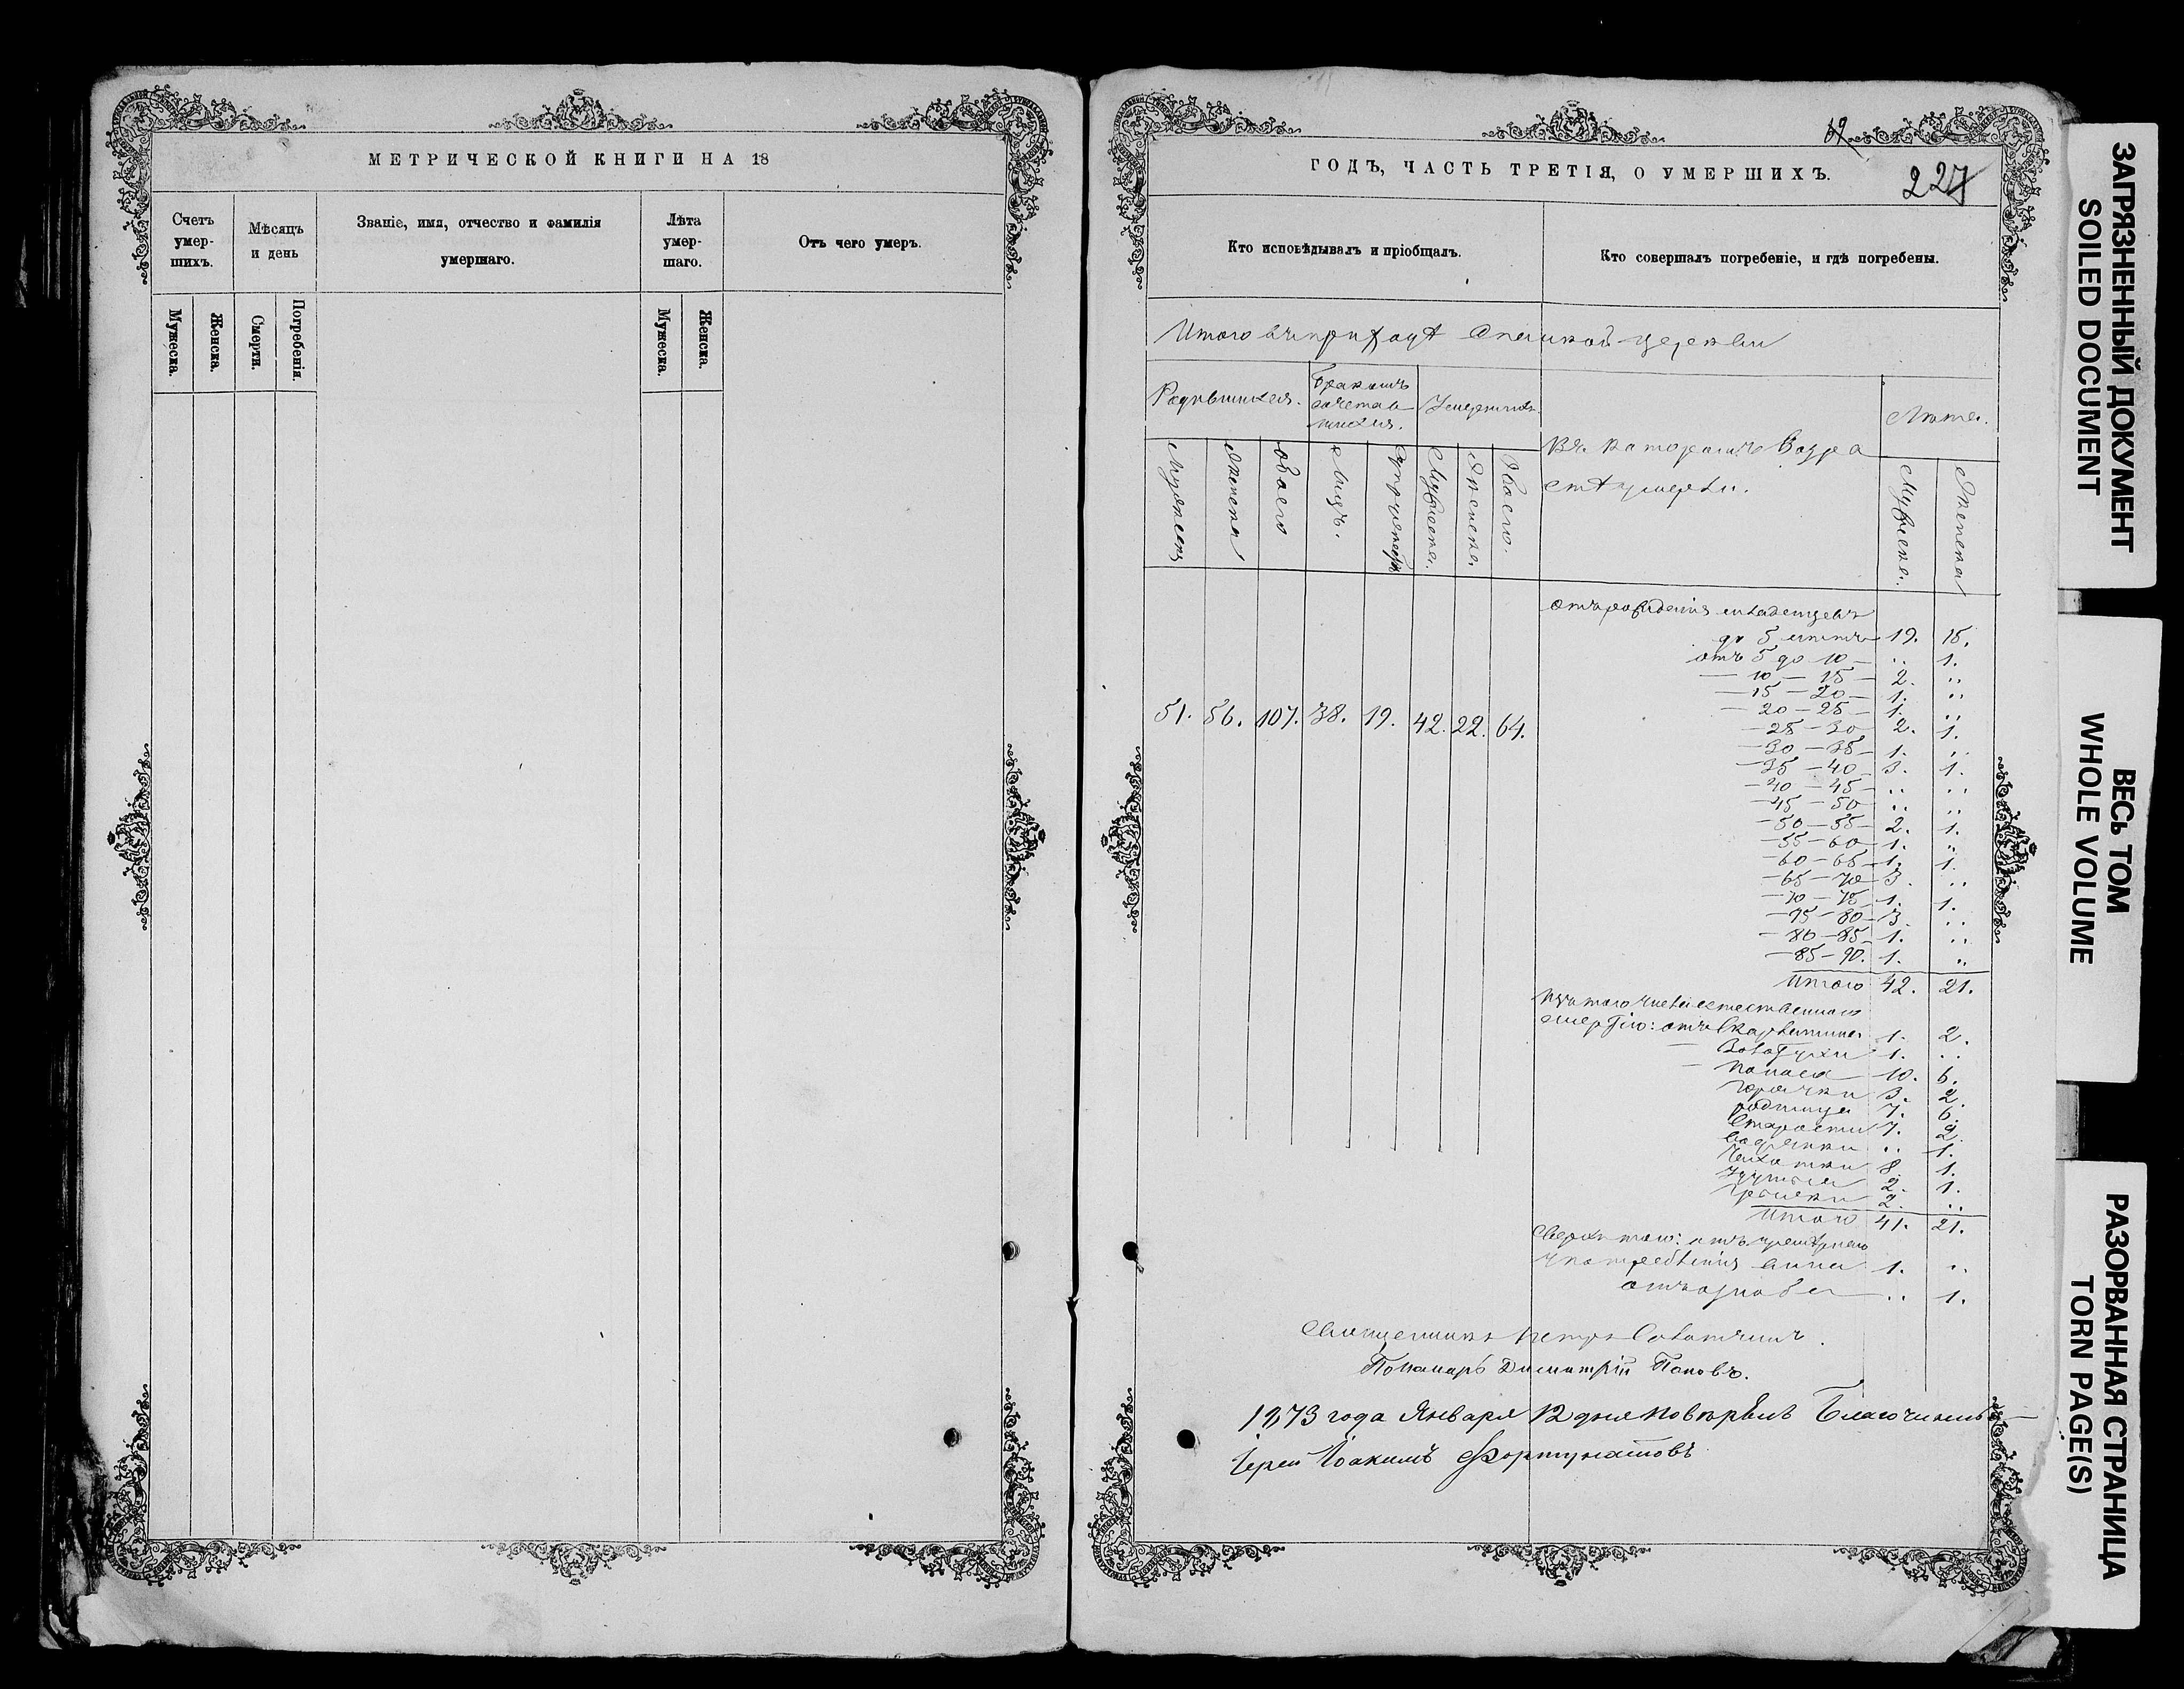 МЕТРИЧЕСКОЙ КНИГИ НА 18
Счетъ умер-шихъ.
Мѣсяцъ и день
Званіе, имя, отчество и фамилія умершаго.
Лѣта умер-шаго.
Отъ чего умеръ.
Мужеска.
Женска.
Смерти.
Погребенія.
Мужеска.
Женска.
69
ГОДЪ, ЧАСТЬ ТРЕТІЯ, О УМЕРШИХЪ.
227
Кто исповѣдывалъ и пріобщалъ.
Кто совершалъ погребеніе, и гдѣ погребены.
Итого въ приходѣ церкви
Родившихся.
Бракомъ сочетав-шихся.
Умершихъ
Въ которомъ возра
стѣ умерли.
Лѣта.
Мужеск
Женска
обоего
Лицъ.
Мужеска.
Женска.
Обоего.
Мужеска.
Женска
51. 56. 107. 38. 19. 42. 22. 64.
отъ рожденія младенцевъ
до 5 лѣтъ 19. 15.
отъ 5 до 10 — „ 1.
— 10 — 15 — 2. „
— 15 — 20 — 1. „
— 20 — 25 — 1. „
— 25 — 30 2. 1.
— 30 — 35 — 1. „
— 35 — 40 — 3. 1.
— 40 — 45 — „ „
— 45 — 50 „ „
— 50 — 55 — 2. 1.
— 55 — 60 — 1. „
— 60 — 65 — 1. 1.
— 65 — 70 — 3. „
— 70 — 75 1. 1.
— 75 — 80 — 3. „
— 80 — 85 — 1. „
— 85 — 90. 1. „
Итого 42. 21.
Изъ того числа естественною
смертію: отъ Скарлатины 1. 2.
— Золотухи 1. „
— Поноса 10. 6.
горячки 3. 2.
родимца 7. 6.
Старости 7. 2.
водянки „ 1.
Чахотки 8. 1.
2. 1.
2. „
Итого 41. 21.
Сверхъ того: отъ
употребленія вина 1. „
отъ „ 1.
Священникъ Петръ
Пономарь Димитрій Поповъ.
1873 года Января 12 дня повѣрялъ Благочинный
Іерей Іоакимъ Фортунатовъ
ЗАГРЯЗНЕННЫЙ ДОКУМЕНТ
SOILED DOCUMENT
ВЕСЬ ТОМ
WHOLE VOLUME
РАЗОРВАННАЯ СТРАНИЦА
TORN PAGE(S)